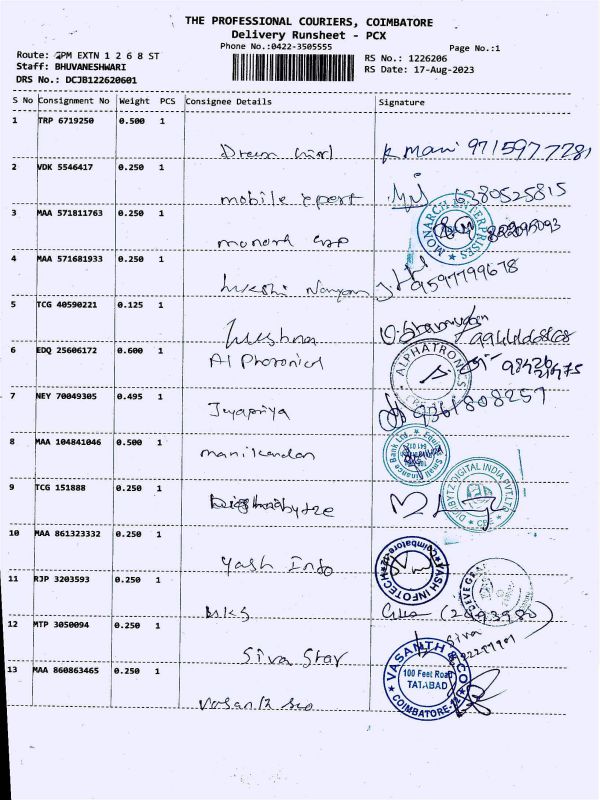 THE PROFESSIONAL COURIERS, COIMBATORE
Delivery Runsheet - PCX
Phone No.:0422-3505555
Page No.:1
Route: GPM EXTN 1 2 6 8 ST
RS No.: 1226206
Staff: BHUVANESHWARI
RS Date: 17-Aug-2023
DRS No.: DCJB122620601
S No Consignment No Weight PCS Consignee Details Signature
1 TRP 6719250 0.500 1
K mani 9715977281
2 VDK 5546417 0.250 1
mobile xpert 6380525815
3 MAA 571811763 0.250 1
MONARCH ENTERPRISES
4 MAA 571681933 0.250 1
9597799678
5 TCG 40590221 0.125 1
6 EDQ 25606172 0.600 1
Al Phoronical
ALPHATRONICS
7 NEY 70049305 0.495 1
Jeyapriya 9361808257
8 MAA 104841046 0.500 1
manikandan
Small Finance Bank Ltd
9 TCG 151888 0.250 1
DIGIBYTZ DIGITAL INDIA PVT.LTD
CBE
10 MAA 861323332 0.250 1
Yash Info
YASH INFOTECH
Coimbatore
11 RJP 3203593 0.250 1
MKS
12 MTP 3050094 0.250 1
Siva
Siva Star
13 MAA 860863465 0.250 1
VASANTH & CO
100 Feet Road
TATABAD
COIMBATORE-12